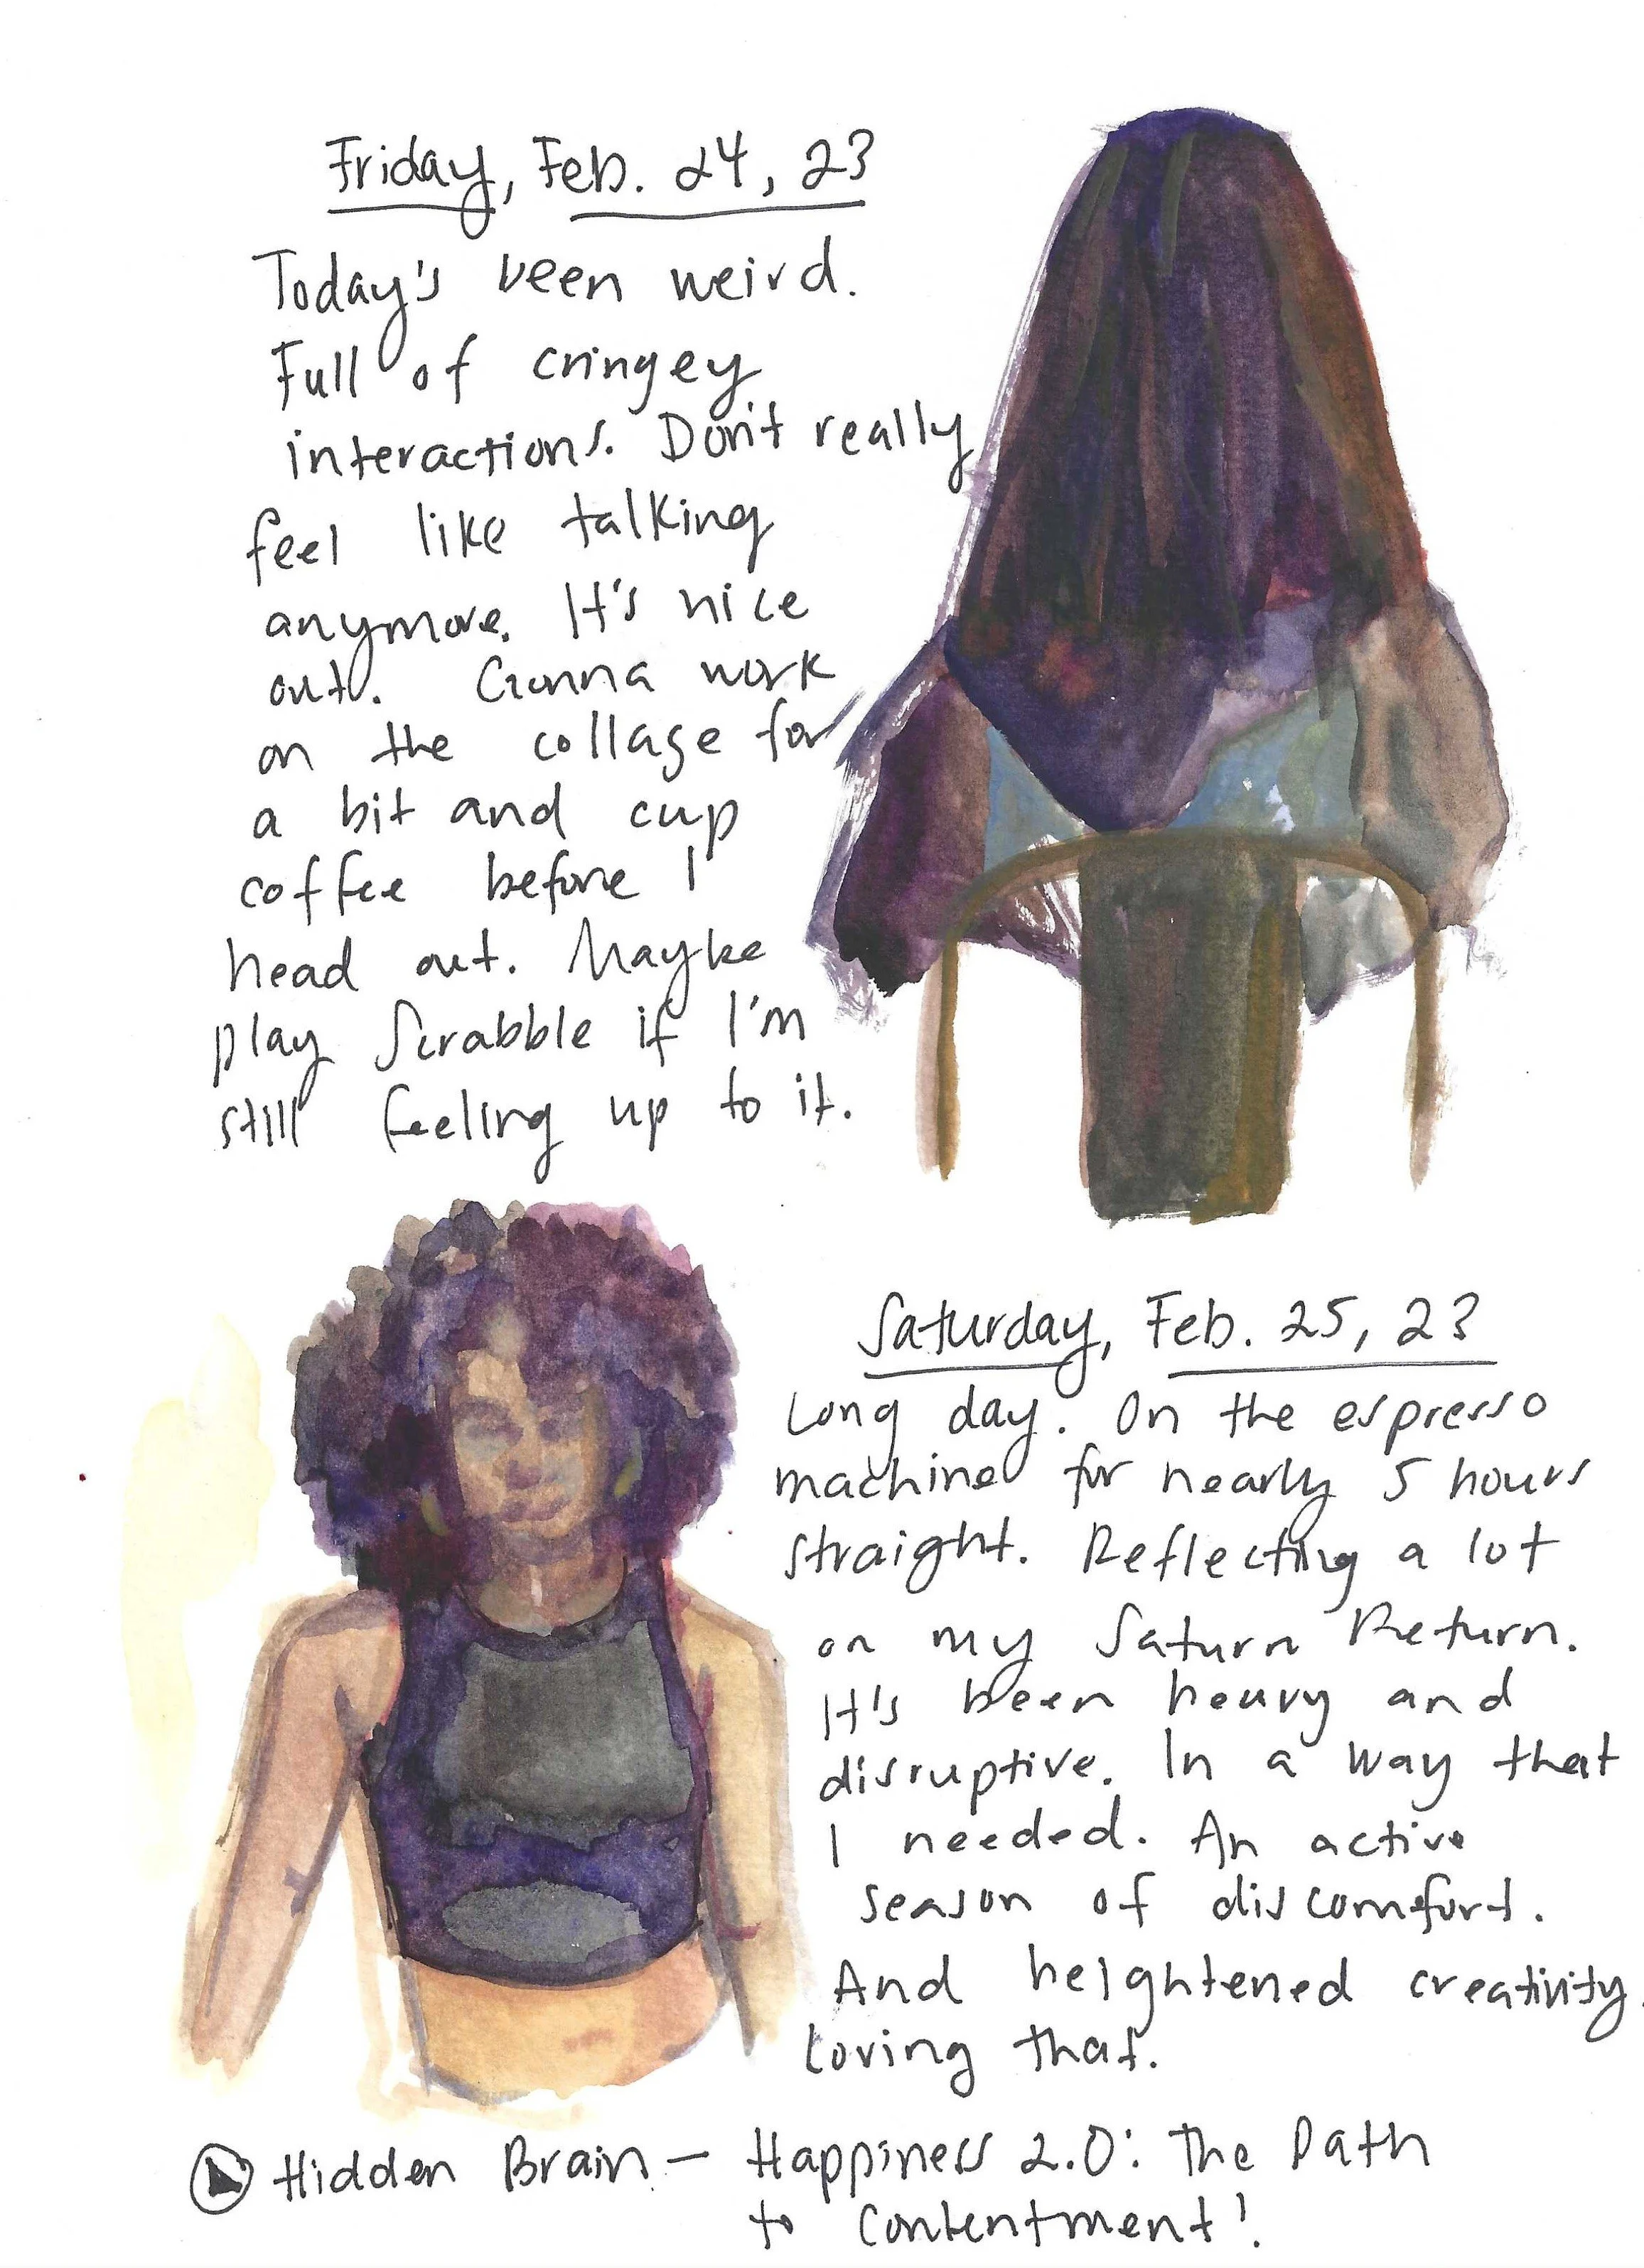 Friday, Feb. 24, 23
Today's been weird.
Full of cringey
interactions. Don't really
feel like talking
anymore. It's nice
out. Gonna work
on the collage for
a bit and cup
coffee before I
head out. Maybe
play Scrabble if I'm
still feeling up to it.
Saturday, Feb. 25, 23
Long day. On the espresso
machine for nearly 5 hours
straight. Reflecting a lot
on my Saturn Return.
It's been heavy and
disruptive. In a way that
I needed. An active
season of discomfort.
And heightened creativity.
Loving that.
Hidden Brain – Happiness 2.0: The Path
to Contentment!